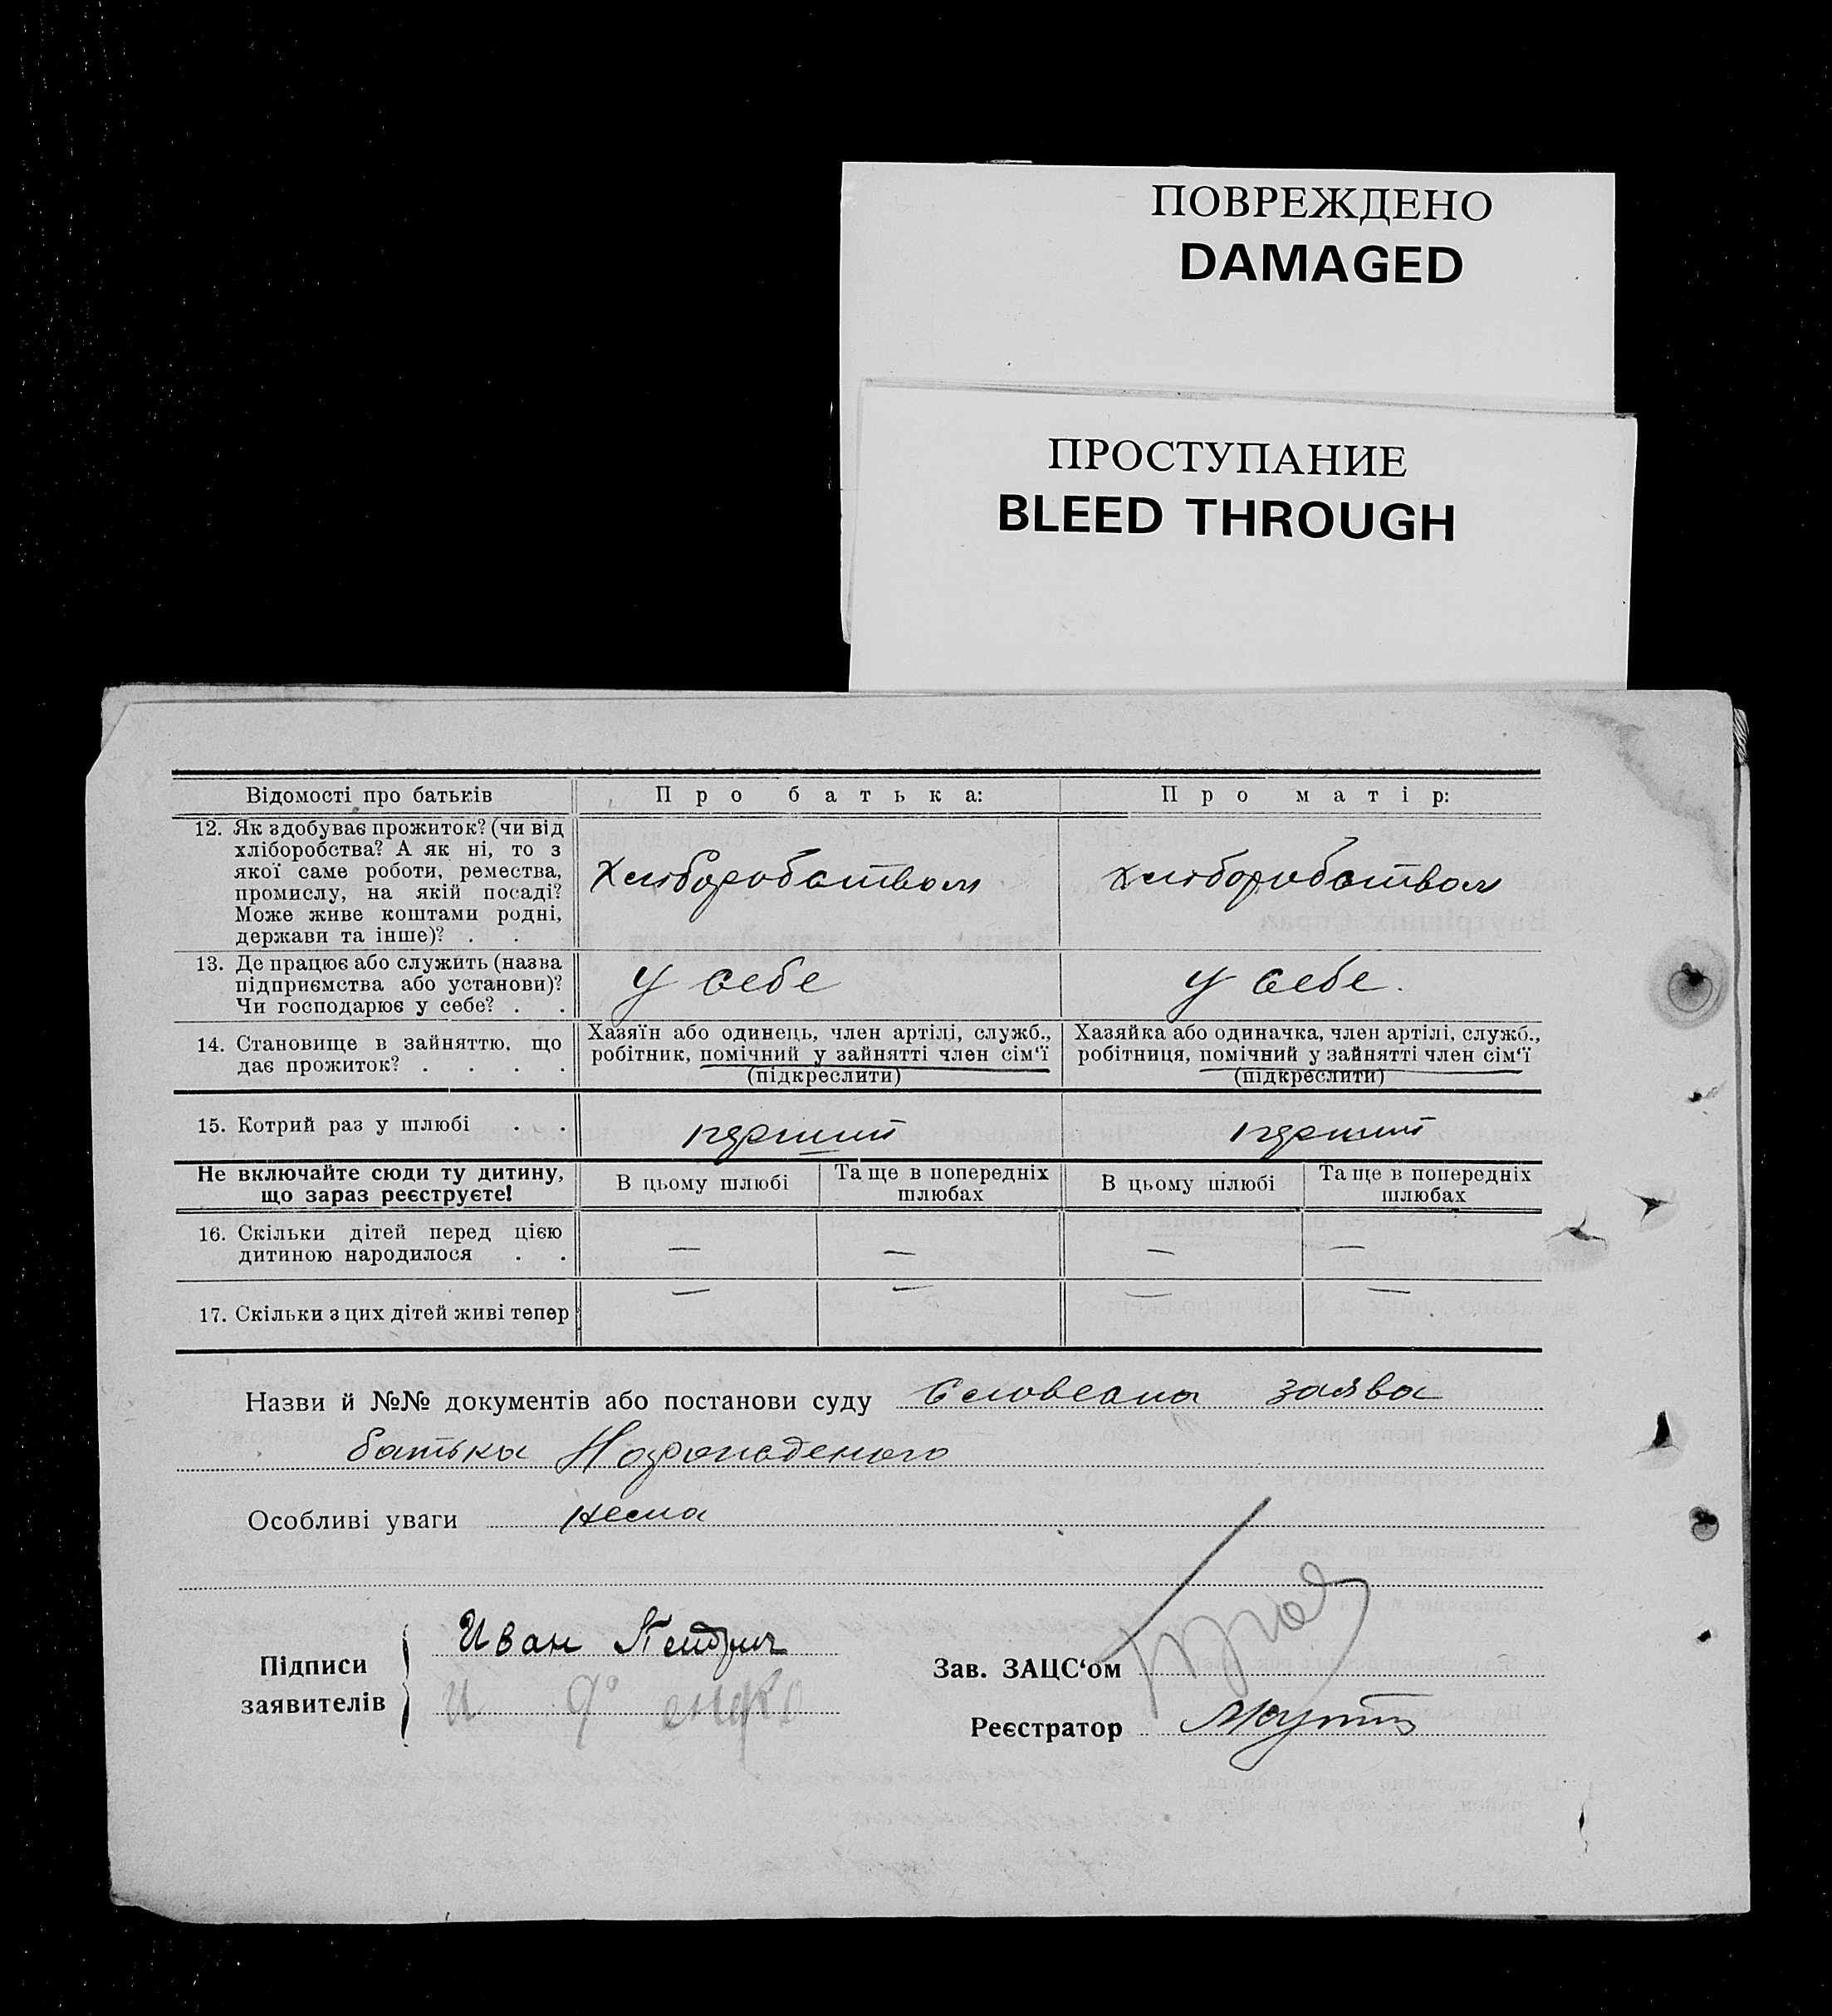 ПОВРЕЖДЕНО
DAMAGED
ПРОСТУПАНИЕ
BLEED THROUGH
Відомості про батьків
Про батька:
Про матір:
12. Як здобуває прожиток? (чи від
хліборобства? А як ні, то з
якої саме роботи, ремества,
промислу, на якій посаді?
Може живе коштами родні,
держави та інше)? . .
Хліборобством
Хліборобством
13. Де працює або служить (назва
підприємства або установи)?
Чи господарює у себе? . .
У себе
У себе.
14. Становище в зайняттю, що
дає прожиток? . . . .
Хазяїн або одинець, член артілі, служб.,
робітник, помічний у зайнятті член сім'ї
(підкреслити)
Хазяйка або одиначка, член артілі, служб.,
робітниця, помічний у зайнятті член сім'ї
(підкреслити)
15. Котрий раз у шлюбі . .
перший
перший
Не включайте сюди ту дитину,
що зараз реєструєте!
В цьому шлюбі
Та ще в попередніх
шлюбах
В цьому шлюбі
Та ще в попередніх
шлюбах
16. Скільки дітей перед цією
дитиною народилося . .
— — — —
17. Скільки з цих дітей живі тепер
— — — —
Назви й №№ документів або постанови суду Словесна заява
батька Народженого
Особливі уваги нема
Підписи
заявителів
Иван
Зав. ЗАЦС'ом
Реєстратор